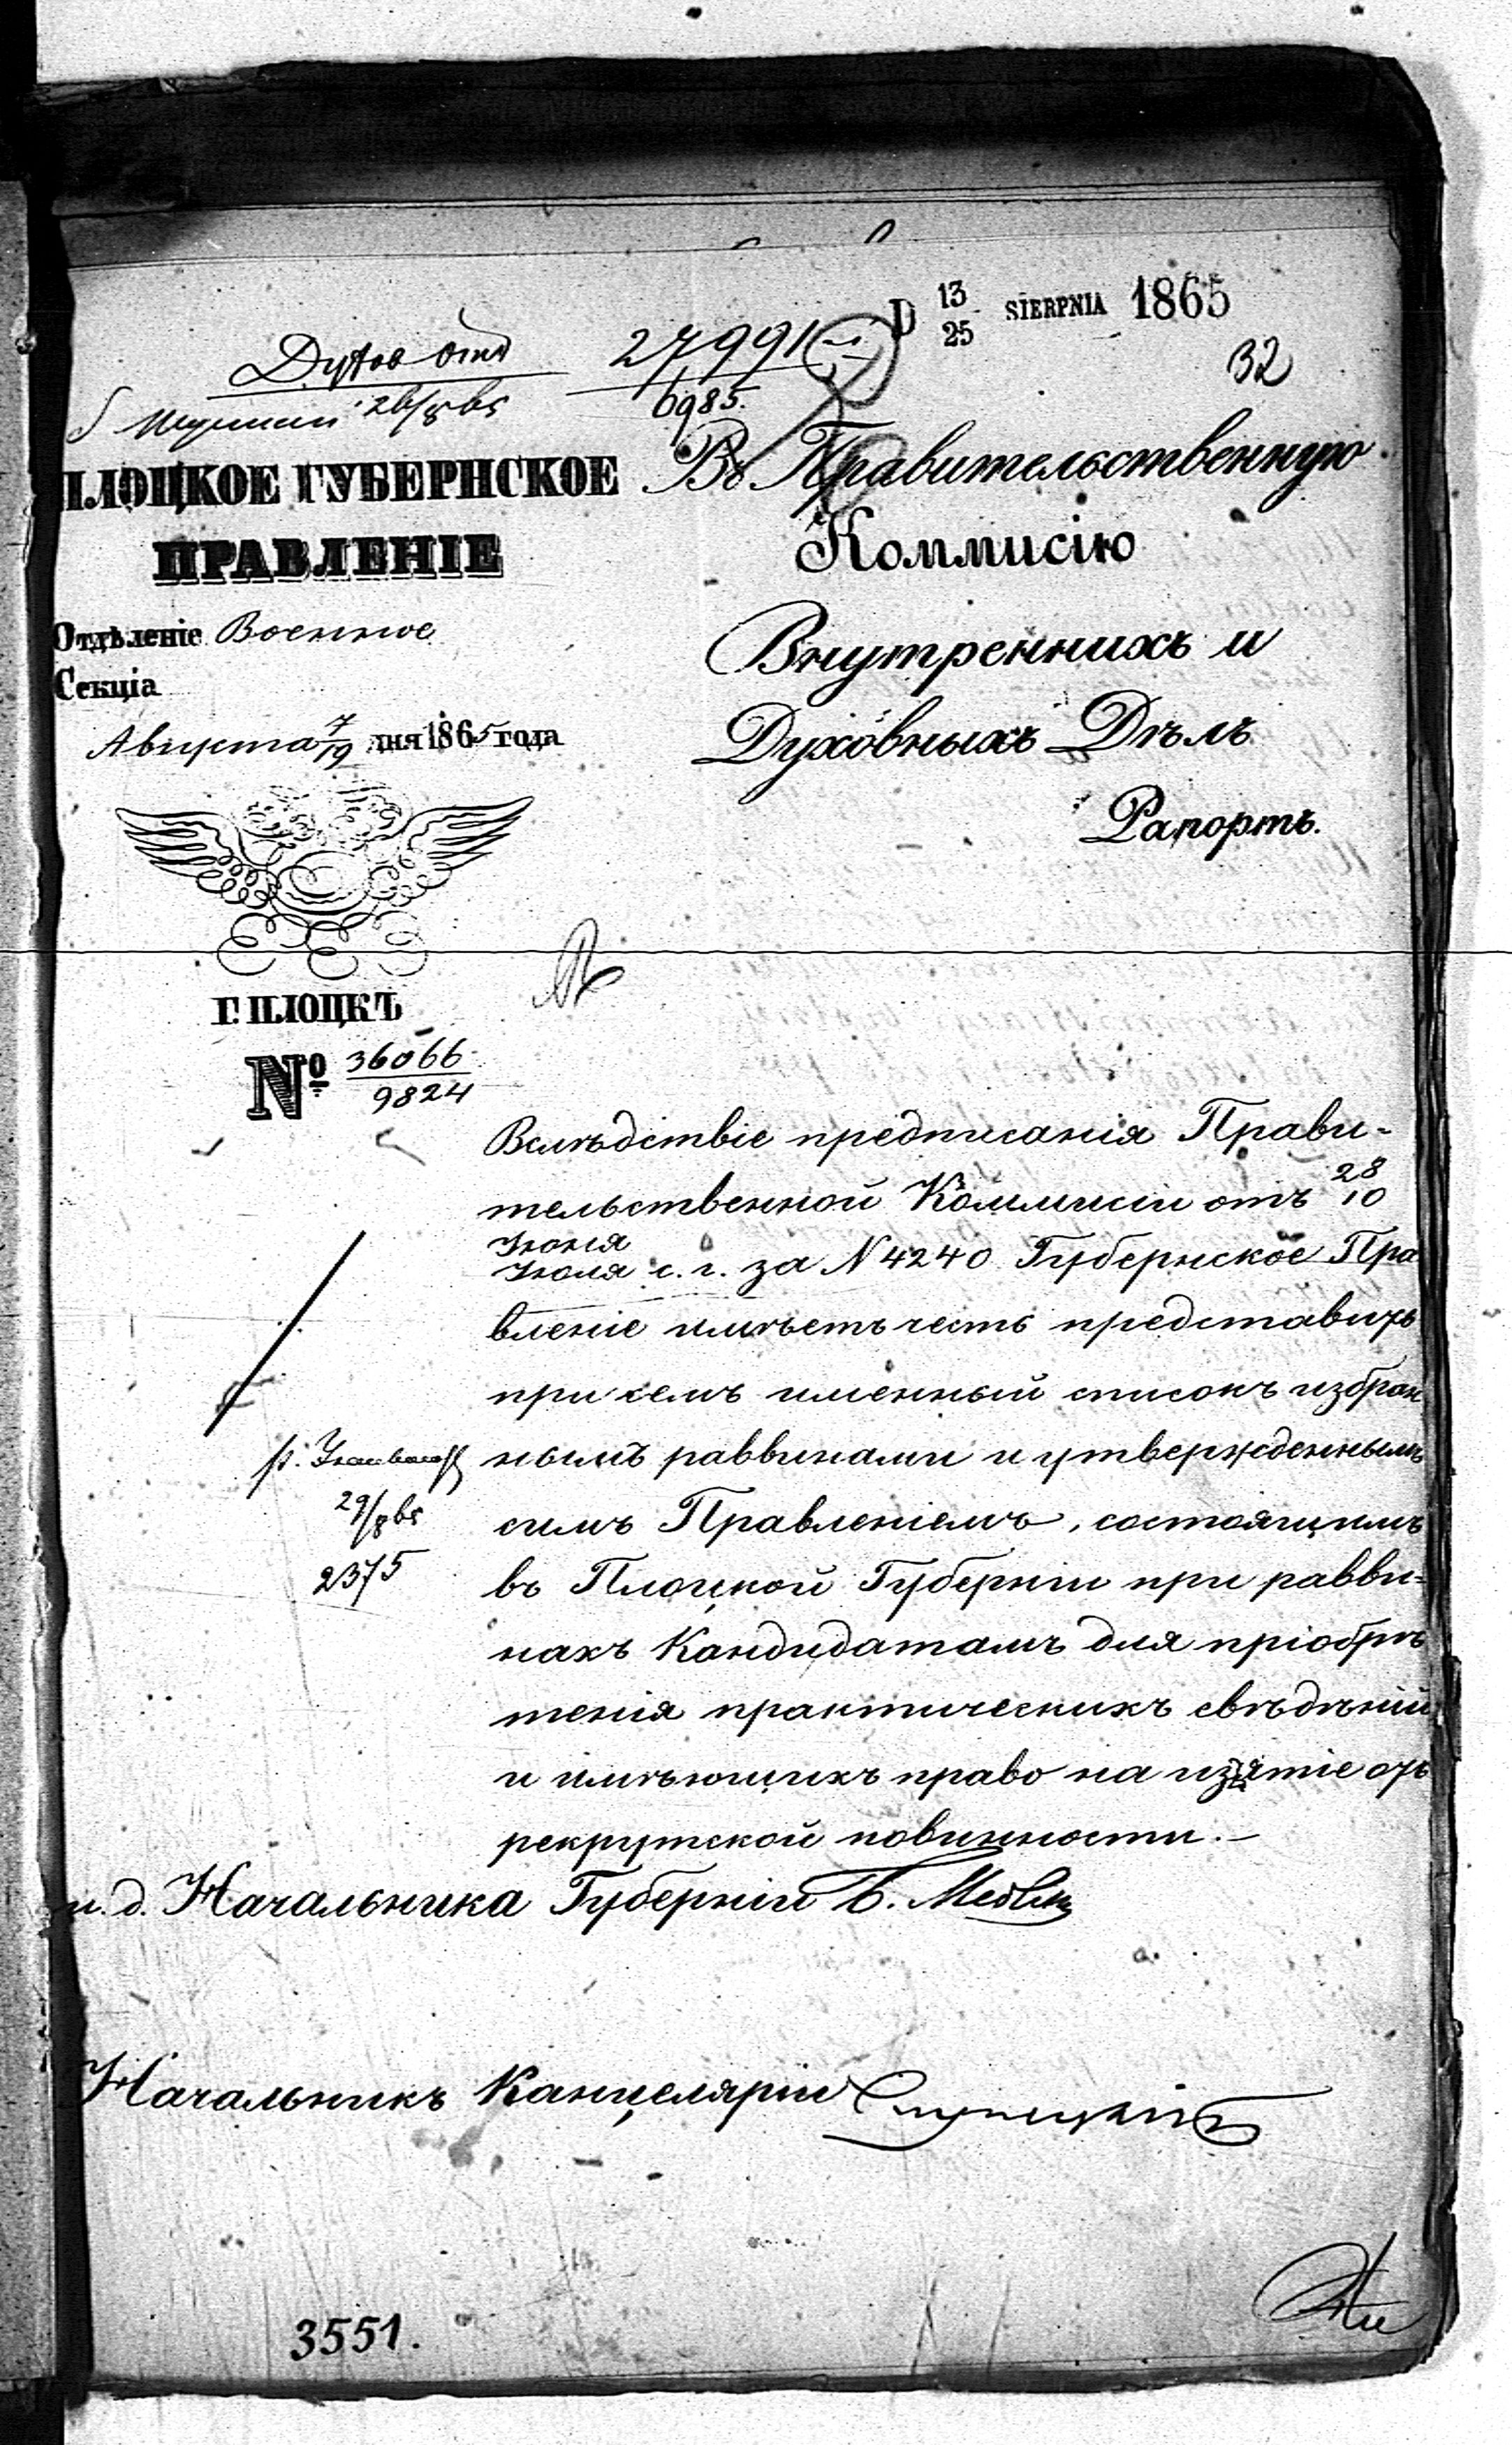 D 13/25 SIERPNIA 1865
32
Духов отд
27991
6985.
26/8 65
ПЛОЦКОЕ ГУБЕРНСКОЕ
ПРАВЛЕНІЕ
Отдѣленіе Военное
Секціа
Августа 7/19 дня 1865 года
Г. ПЛОЦКЪ
№ 36066
9824
Въ Правительственную
Коммисію
Внутреннихъ и
Духовныхъ Дѣлъ
Рапортъ.
Вслѣдствіе предписанія Прави-
тельственной Коммисіи отъ 28/10
Іюня/Іюля с. г. за N 4240 Губернское Пра
вленіе имѣетъ честь представить
при семъ именный списокъ избран
нымъ раввинами и утвержденнымъ
симъ Правленіемъ, состоящимъ
въ Плоцкой Губерніи при равви-
нахъ Кандидатамъ для пріобрѣ
тенія практическихъ свѣдѣній
и имѣющихъ право на изъятіе отъ
рекрутской повинности.—
29/8 65
2375
и. д. Начальника Губерніи
Начальникъ Канцеляріи
3551.